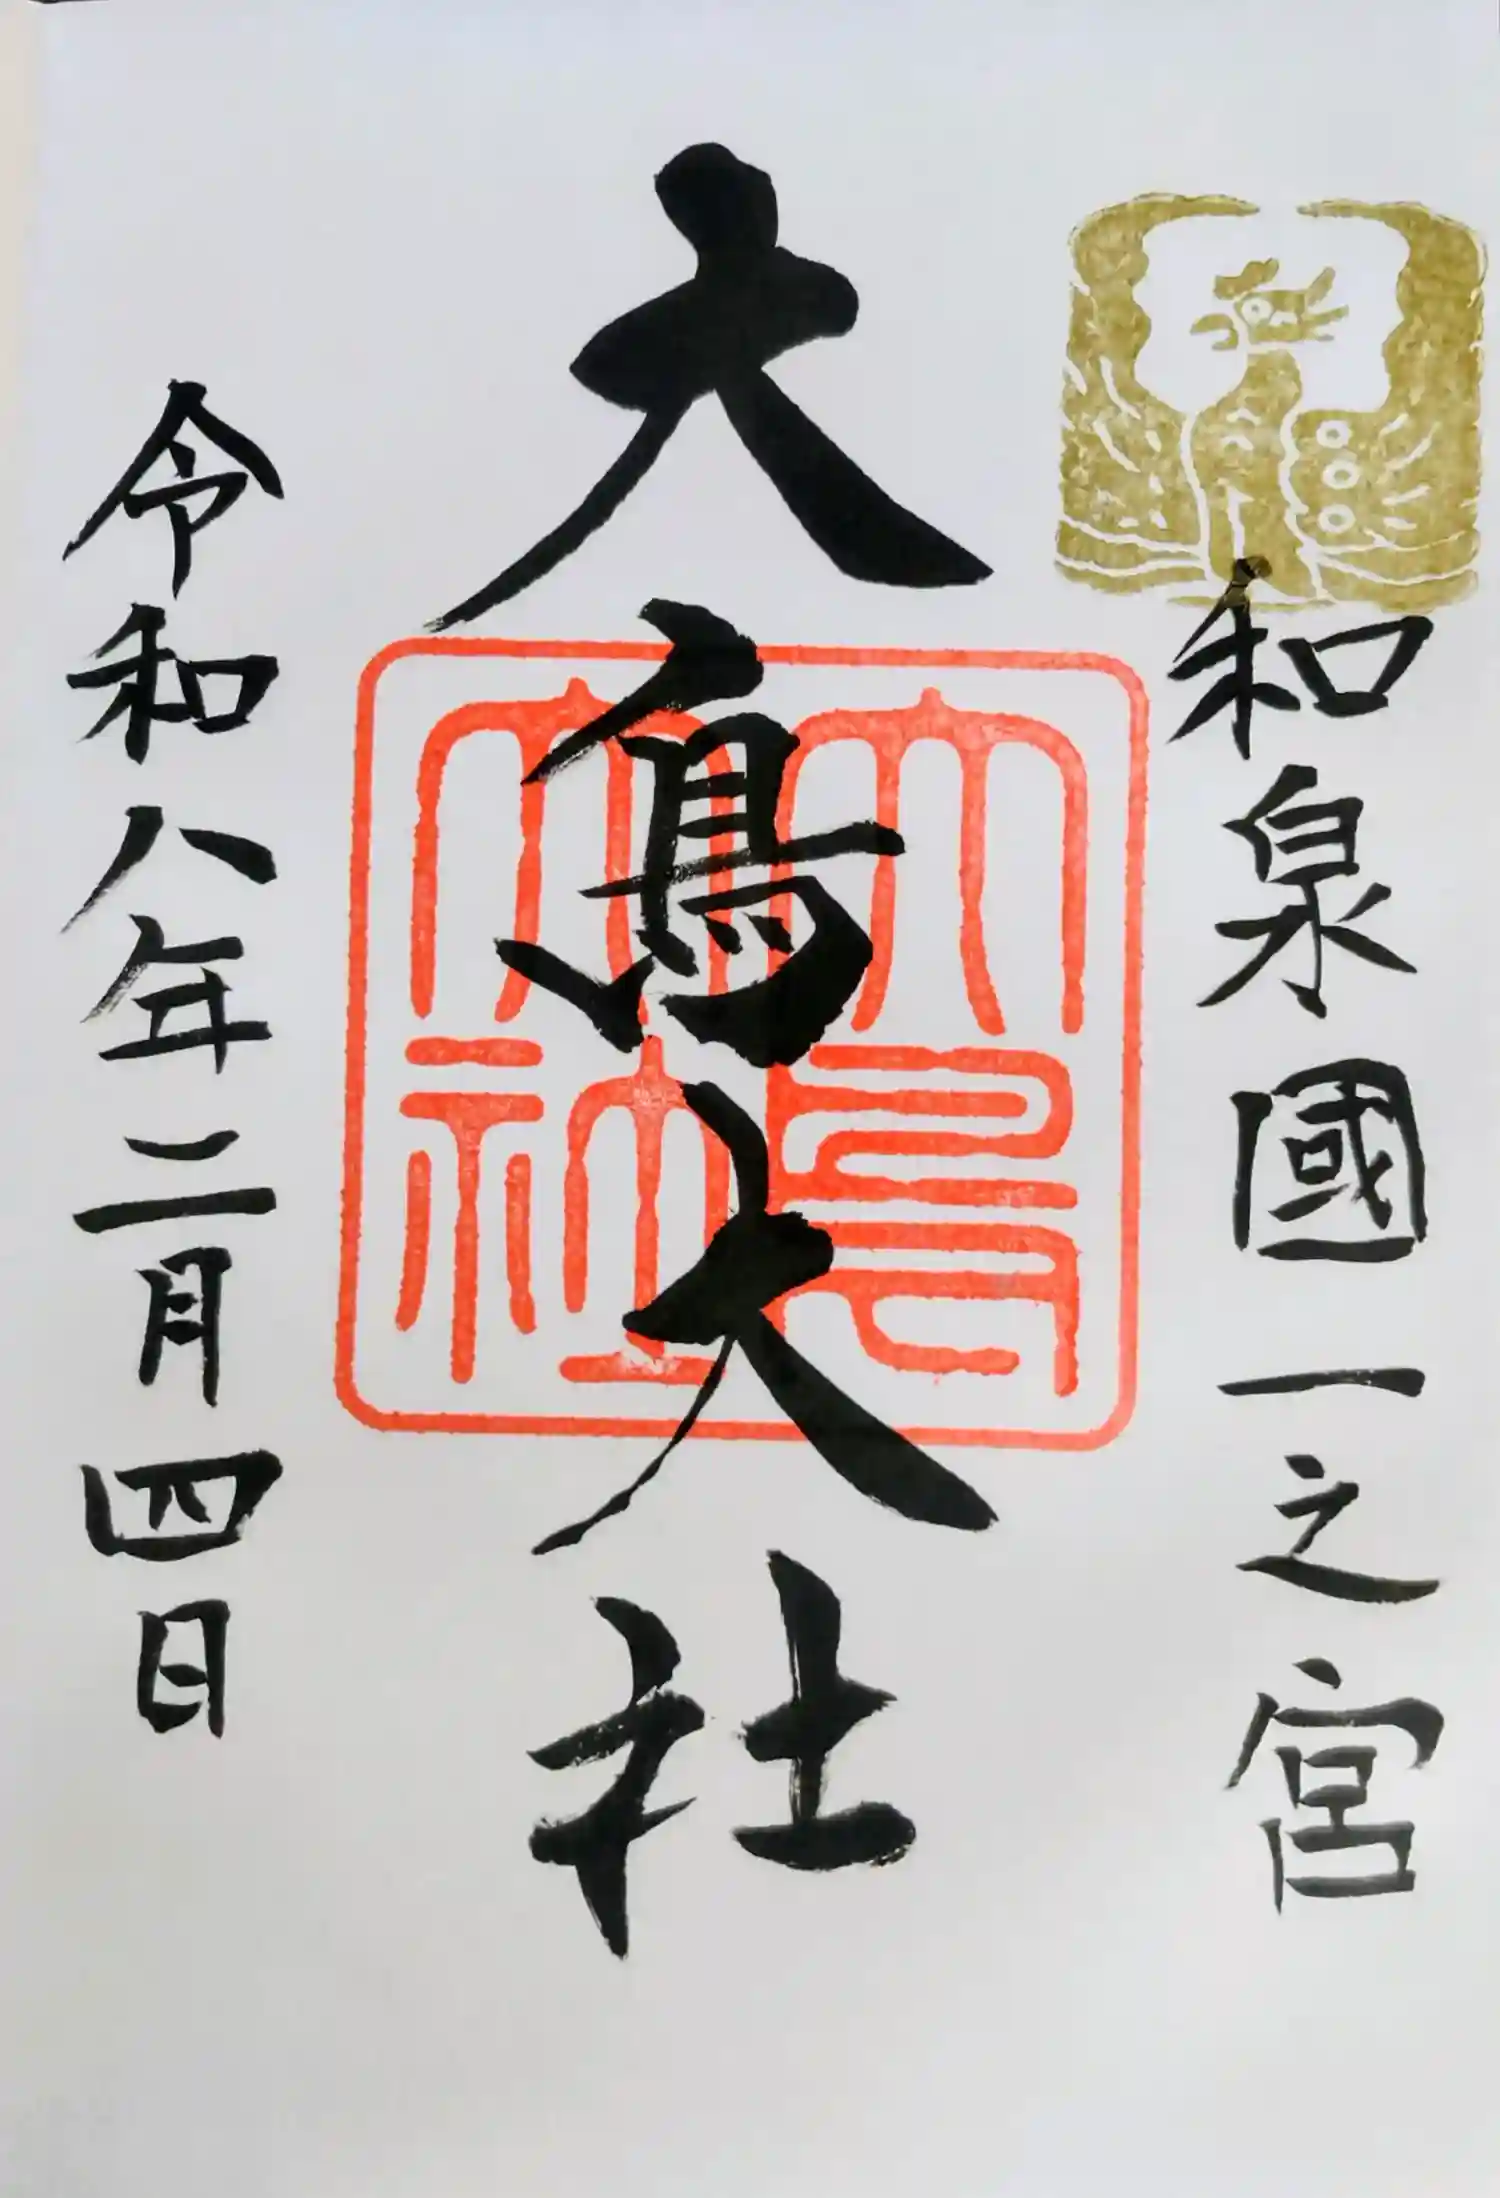 和泉國一之宮
大鳥大社
大鳥大社
令和八年二月四日